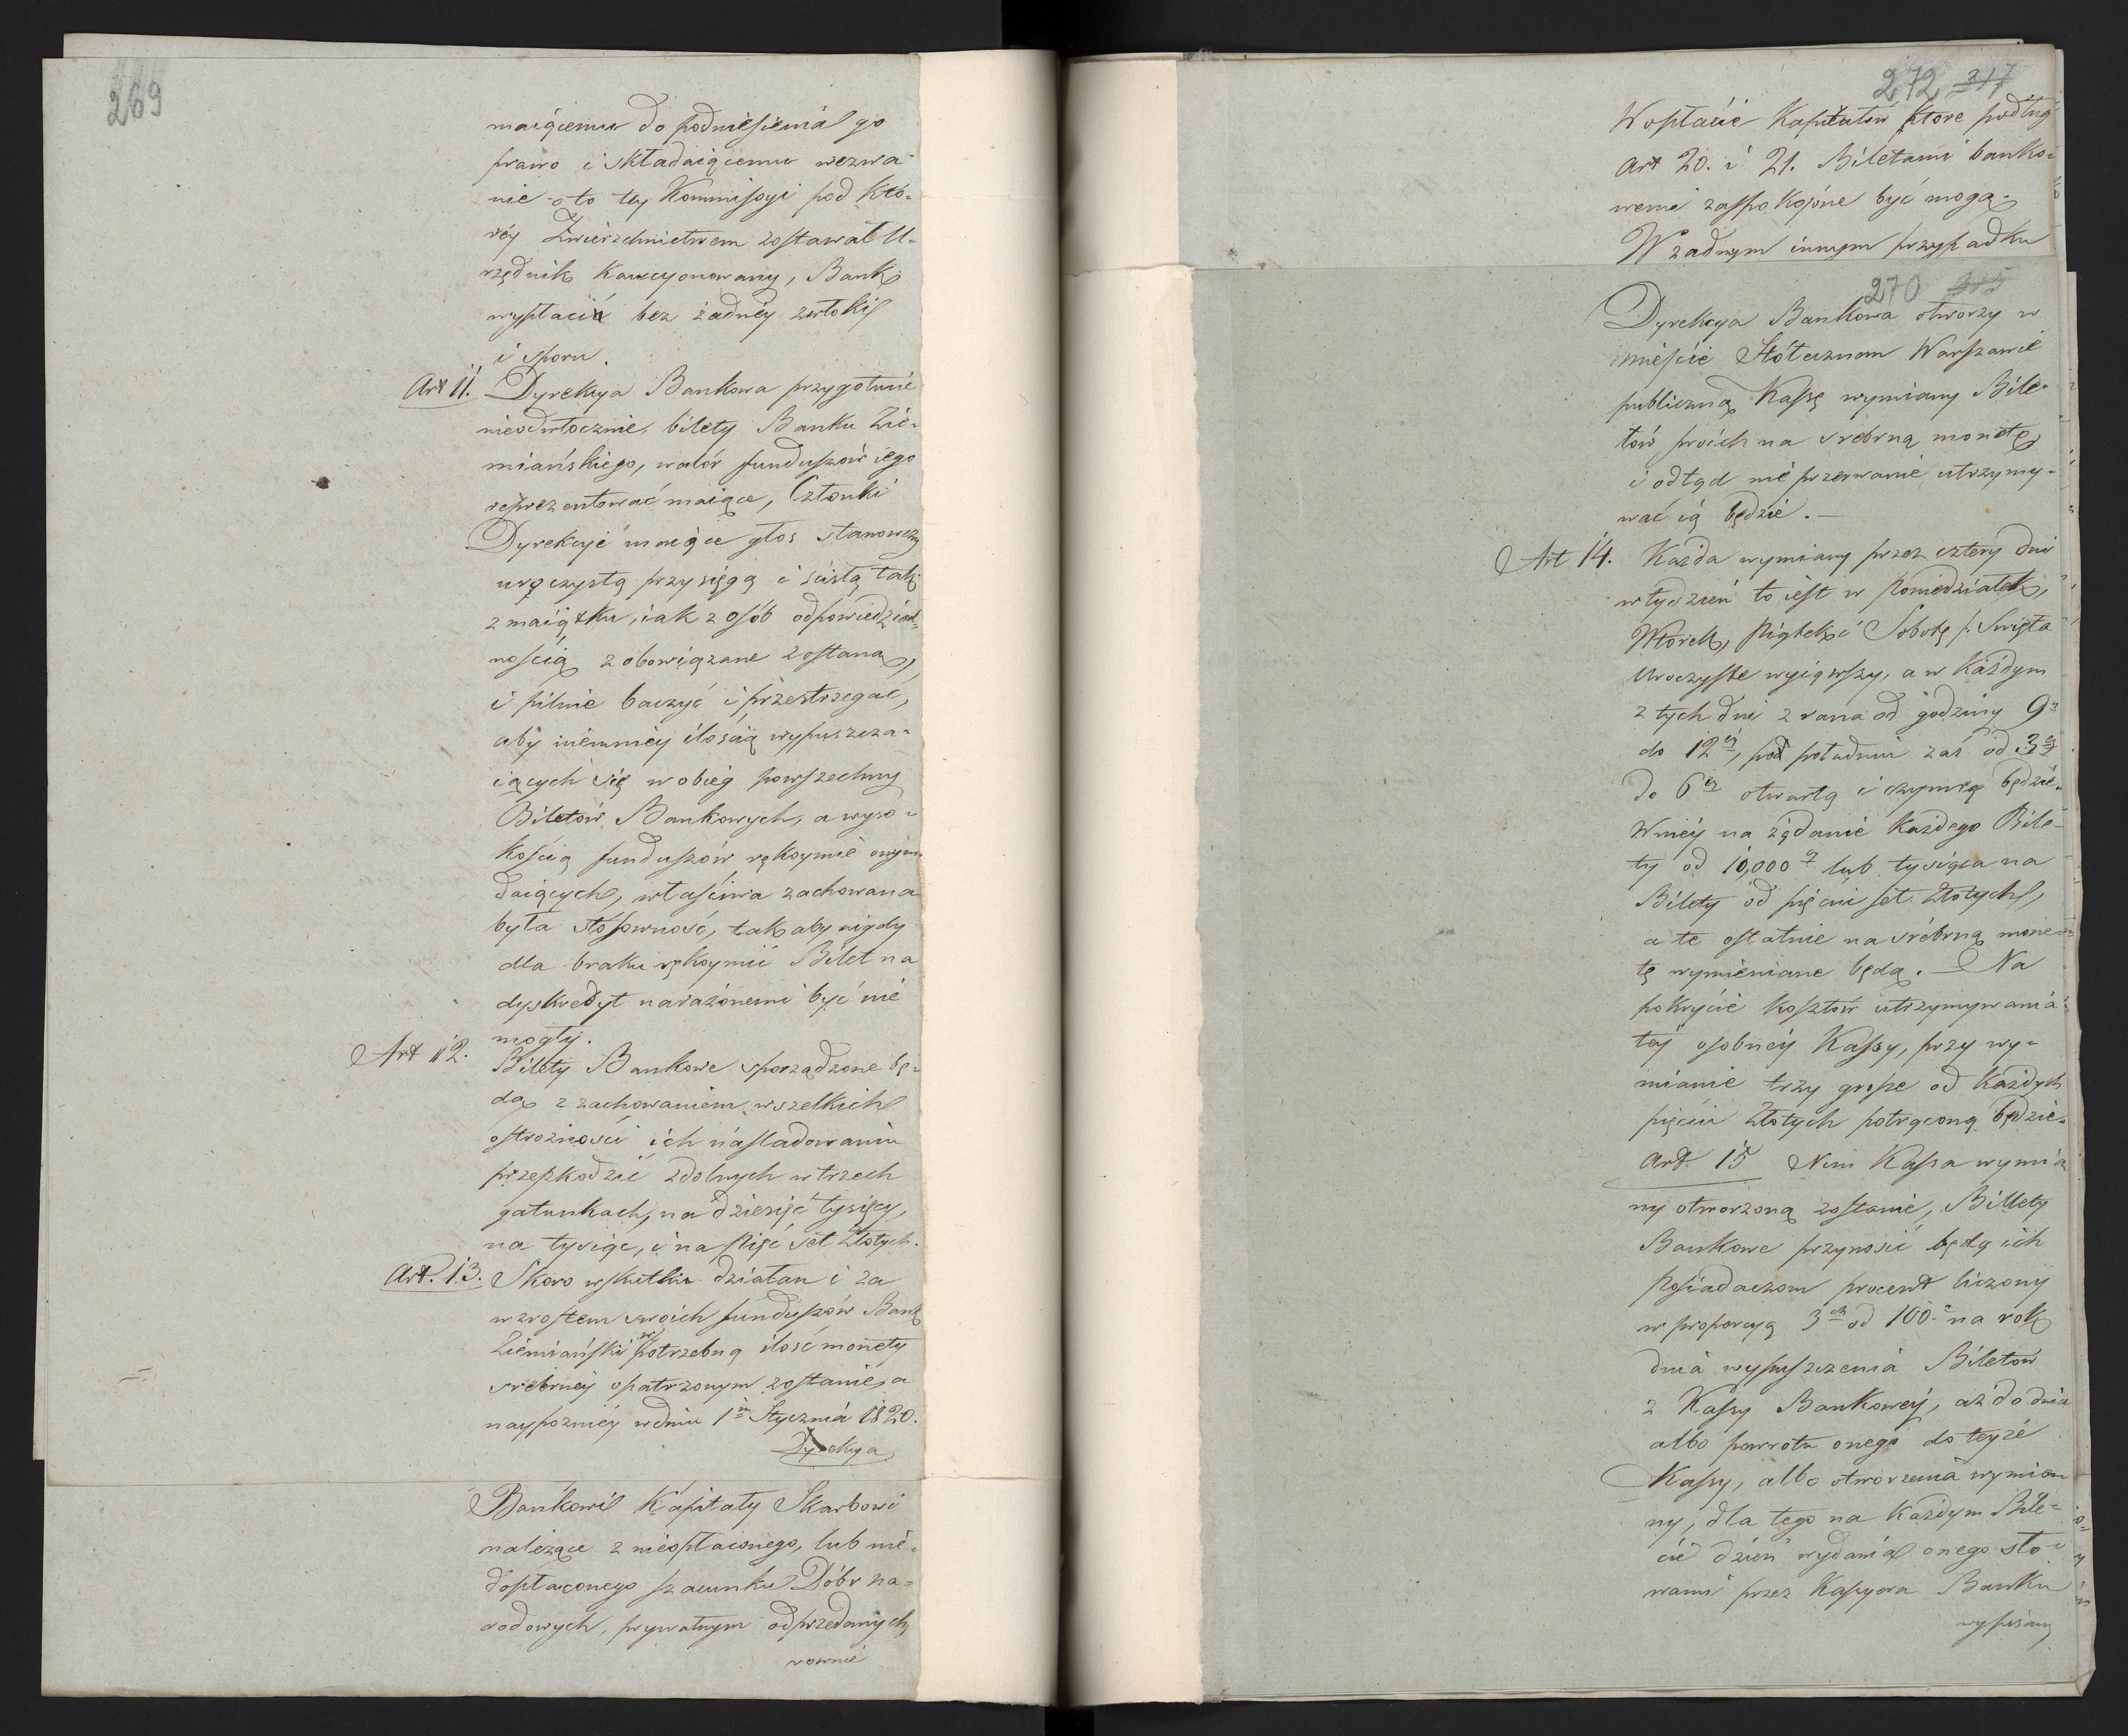 269
maiącemu do podniesienia go
prawo i składaiącemu wezwa-
nie oto tey Kommissyi pod któ-
réy Zwierzchnictwem zostawał U-
rzędnik Kaucyonowany, Bank
wypłacić bez żadnéy zwłoki
i sporu.
Art 11. Dyrekcya Bankowa przygotuie
nieodwłocznie, bilety Banku Zie-
miańskiego, walór funduszów iego
reprezentować maiące, Członki
Dyrekcyi maiące głos stanowczy
uręczystą przysięgą i ścisłą tak
z maiątku, iak z osób odpowiedzial-
nością zobowiązane zostaną,
i pilnie baczyć i przestrzegać,
aby niemniéy ilością wypuszcza-
iących się w obieg powszechny
Biletów Bankowych, a wyso-
kością funduszów rękoymie onym
daiących, właściwa zachowana
była stósowność, tak aby nigdy
dla braku rękoymii Bilet na
dyskredyt narażonemi być nie
mogły.
Art 12. Bilety Bankowe sporządzone bę-
dą z zachowaniem wszelkich
ostrożności ich naśladowaniu
przeszkodzić zdolnych w trzech
gatunkach, na dziesięć tysięcy,
na tysiąc, i na pięć set Złotych.
Art. 13. Skoro wskutku działan i za
wzrostem swoich funduszów Bank
Ziemiański w potrzebną ilość monety
srebrnéy opatrzonym zostanie, a
naypoźniéy w dniu 1m Stycznia 1820.
Dyrekcya
Bankowi Kapitały Skarbowi
należące z nieopłaconego, lub nie-
dopłaconego szacunku Dóbr na-
rodowych, prywatnym odprzedanych
rownie
272 317
W opłacie Kapitałów które podług
Art 20. i 21. Biletami banko-
wemi zaspokoione być mogą.
W żadnym innym przypadku
270 315
Dyrekcya Bankowa otworzy w
mieście Stółecznem Warszawie
publiczną Kassę wymiany Bile-
tów swoich na srebrną monetę
i odtąd nie przerwanie utrzymy-
wać ią będzie.—
Art 14. Kassa wymiany przez cztery dni
w tydzień to iest w Poniedziałek,
Wtorek, Piątek i Sobotę /: Swięta
Uroczyste wyiąwszy, a w każdym
z tych dni z rana od godziny 9ey
do 12ey, po południu zaś od 3ey
do 6ey otwartą i czynną będzie.
W niéy na żądanie każdego Bile-
ty od 10,000cy lub tysiąca na
Bilety od pięciu set Złotych,
a te ostatnie na srébrną mone-
tę wymieniane będą.— Na
pokrycie kosztów utrzymywania
téy osobnéy Kassy, przy wy-
mianie trzy grosze od każdych
pięciu Złotych potrąconą będzie.
Art. 15 Nim Kassa wymia
ny otworzoną zostanie, Billety
Bankowe przynosić będą ich
Posiadaczom procent liczony
w proporcyą 3ch od 100a na rok
dnia wypuszczenia Biletów
z Kassy Bankowéy, aż do dnia
albo powrotu onego do teyże
Kassy, albo otworzenia wymian
ny, dla tego na każdym Bile-
cie dzień wydania onego sło-
wami przez Kassyera Banku
wypisany